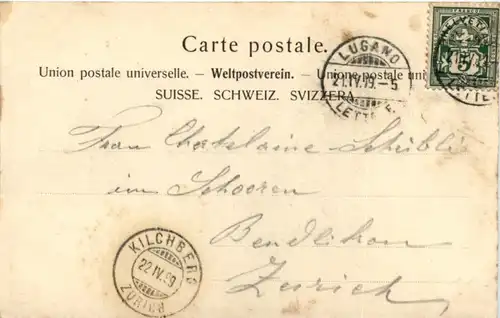 Carte postale.
Union postale universelle. — Weltpostverein. — Unione postale uni
SUISSE. SCHWEIZ. SVIZZERA.
LUGANO
21.IV.99.–5
LETT
FRANCO
HELVETIA
5
LETTE
Frau Chatelaine Schübli
im Schooren
Bendlikon
Zürich
KILCHBERG
22.IV.99
ZÜRICH